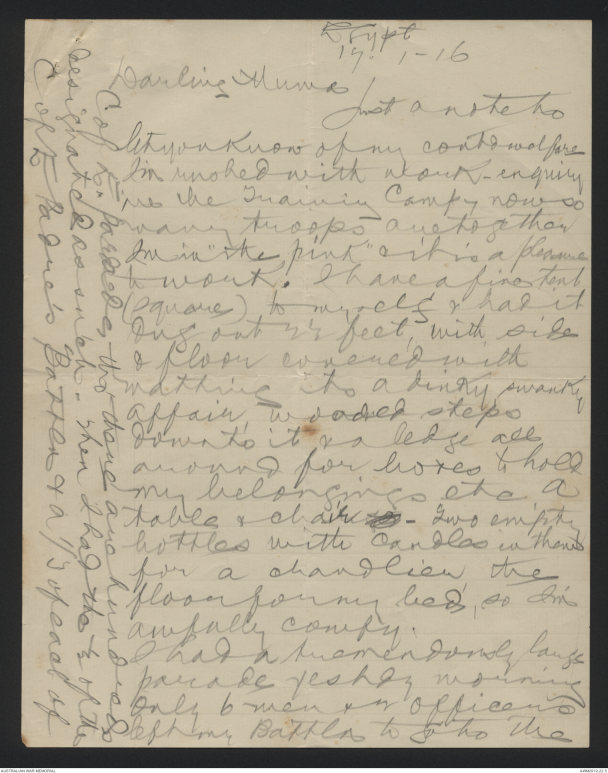 Egypt
17. 1-16
Darling Mums
Just a note to
let you know of my contd welfare
I'm rushed with work - enquiry
re the Training Camp, now so
many troops are together
I'm in "the pink" & it is a pleasure
to work. I have a fine tent
(square) to myself & had it
dug out 2½ feet, with side
& floor covered with
matting its a dinky, swanky
affair, wooded steps
down to it & a ledge all
around for boxes to hold
my belongings etc A
table & chair - Two empty
bottles with Candles in them
for a chandlier, the
floor for my bed, so I'm
awfully comfy.
I had a tremendously large
parade yestdy morning
only 6 men & officers
left my Battln to go to the
Cof E. parade, tho there are hundreds
designated as such - then I had the ½ of the
Cof to Padre's Battln & a ⅓ of each of